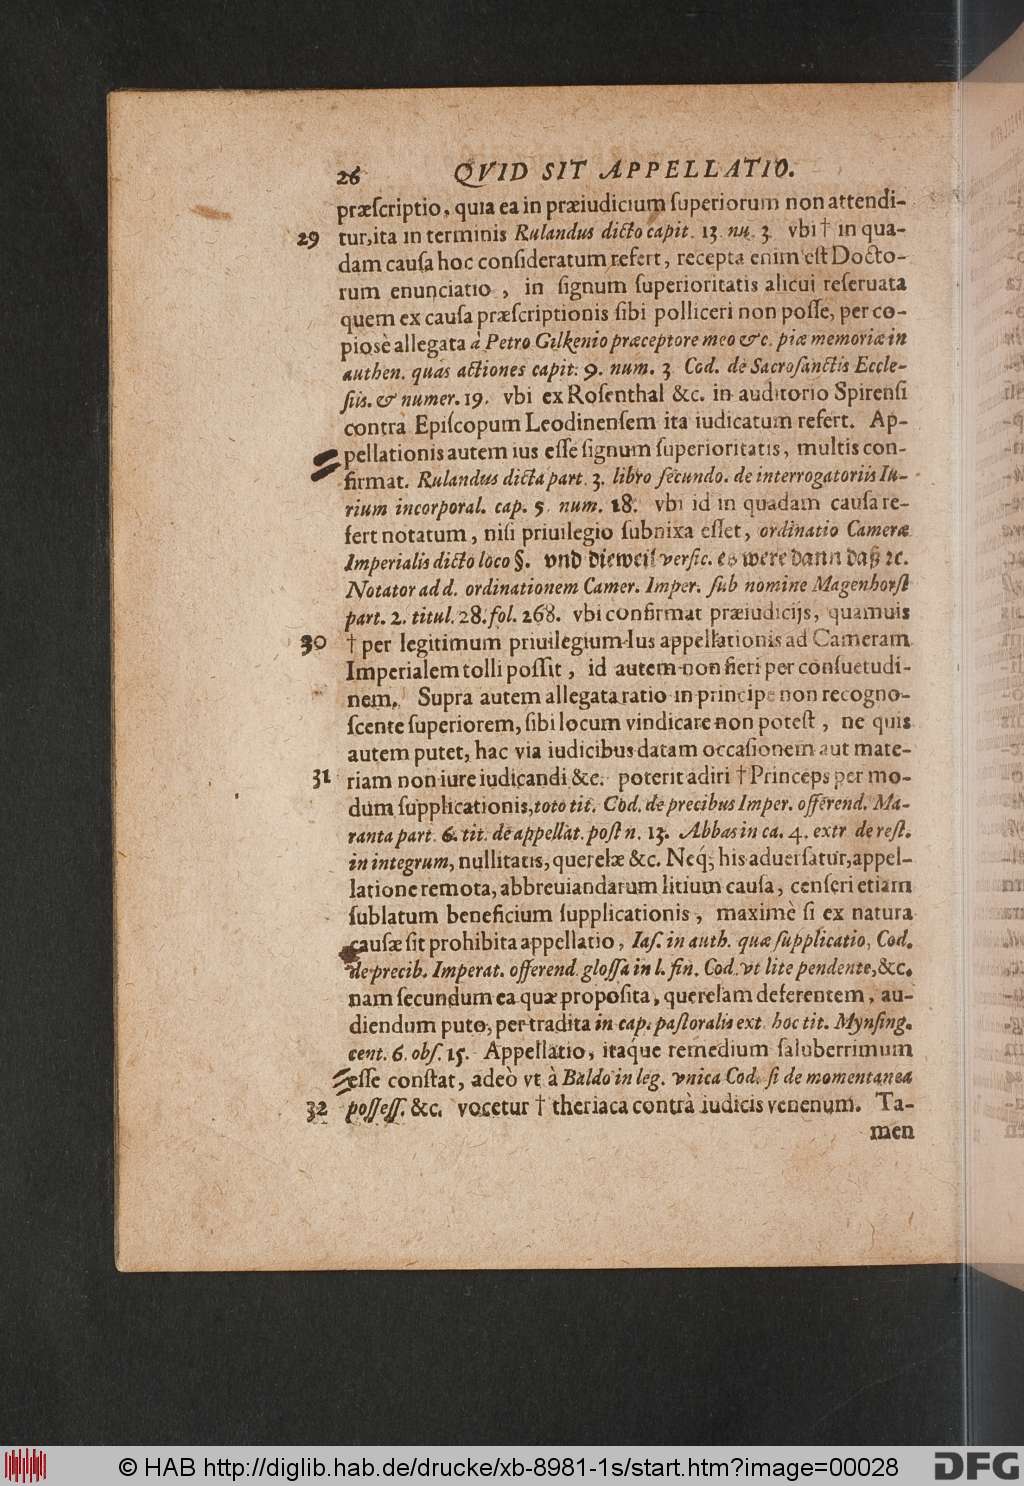 26 QVID SIT APPELLATIO.
præſcriptio, quia ea in præiudicium ſuperiorum non attendi-
29 tur, ita in terminis Rulandus dicto capit. 13. nu. 3. vbi † in qua-
dam cauſa hoc conſideratum refert, recepta enim eſt Docto-
rum enunciatio, in ſignum ſuperioritatis alicui reſeruata
quem ex cauſa præſcriptionis ſibi polliceri non poſſe, per co-
piosè allegata à Petro Gilkenio præceptore meo &c. piæ memoriæ in
authen. quas actiones capit: 9. num. 3. Cod. de Sacroſanctis Eccle-
ſiis. & numer. 19. vbi ex Roſenthal &c. in auditorio Spirenſi
contra Epiſcopum Leodinenſem ita iudicatum refert. Ap-
pellationis autem ius eſſe ſignum ſuperioritatis, multis con-
firmat. Rulandus dicta part. 3. libro ſecundo. de interrogatoriis Iu-
rium incorporal. cap. 5. num. 18. vbi id in quadam cauſa re-
fert notatum, niſi priuilegio ſubnixa eſſet, ordinatio Cameræ
Imperialis dicto loco §. vnd dieweil verſic. es were dann daß ꝛc.
Notator ad d. ordinationem Camer. Imper. ſub nomine Magenhorſt
part. 2. titul. 28. fol. 268. vbi confirmat præiudicijs, quamuis
30 † per legitimum priuilegium Ius appellationis ad Cameram
Imperialem tolli poſſit, id autem non fieri per conſuetudi-
nem. Supra autem allegata ratio in principe non recogno-
ſcente ſuperiorem, ſibi locum vindicare non poteſt, ne quis
autem putet, hac via iudicibus datam occaſionem aut mate-
31 riam non iure iudicandi &c. poterit adiri † Princeps per mo-
dum ſupplicationis, toto tit. Cod. de precibus Imper. offerend. Ma-
ranta part. 6. tit. de appellat. poſt n. 13. Abbas in ca. 4. extr. de reſt.
in integrum, nullitatis, querelæ &c. Neq́; his aduerſatur, appel-
latione remota, abbreuiandarum litium cauſa, cenſeri etiam
ſublatum beneficium ſupplicationis, maximè ſi ex natura
cauſæ ſit prohibita appellatio, Iaſ. in auth. quæ ſupplicatio, Cod.
de precib. Imperat. offerend. gloſſa in l. fin. Cod. vt lite pendente, &c.
nam ſecundum ea quæ propoſita, querelam deferentem, au-
diendum puto, per tradita in cap. paſtoralis ext. hoc tit. Mynſing.
cent. 6. obſ. 15. Appellatio, itaq́ue remedium ſaluberrimum
eſſe conſtat, adeò vt à Baldo in leg. vnica Cod. ſi de momentanea
32 poſſeſſ. &c. vocetur † theriaca contrà iudicis venenum. Ta-
men
© HAB http://diglib.hab.de/drucke/xb-8981-1s/start.htm?image=00028
DFG